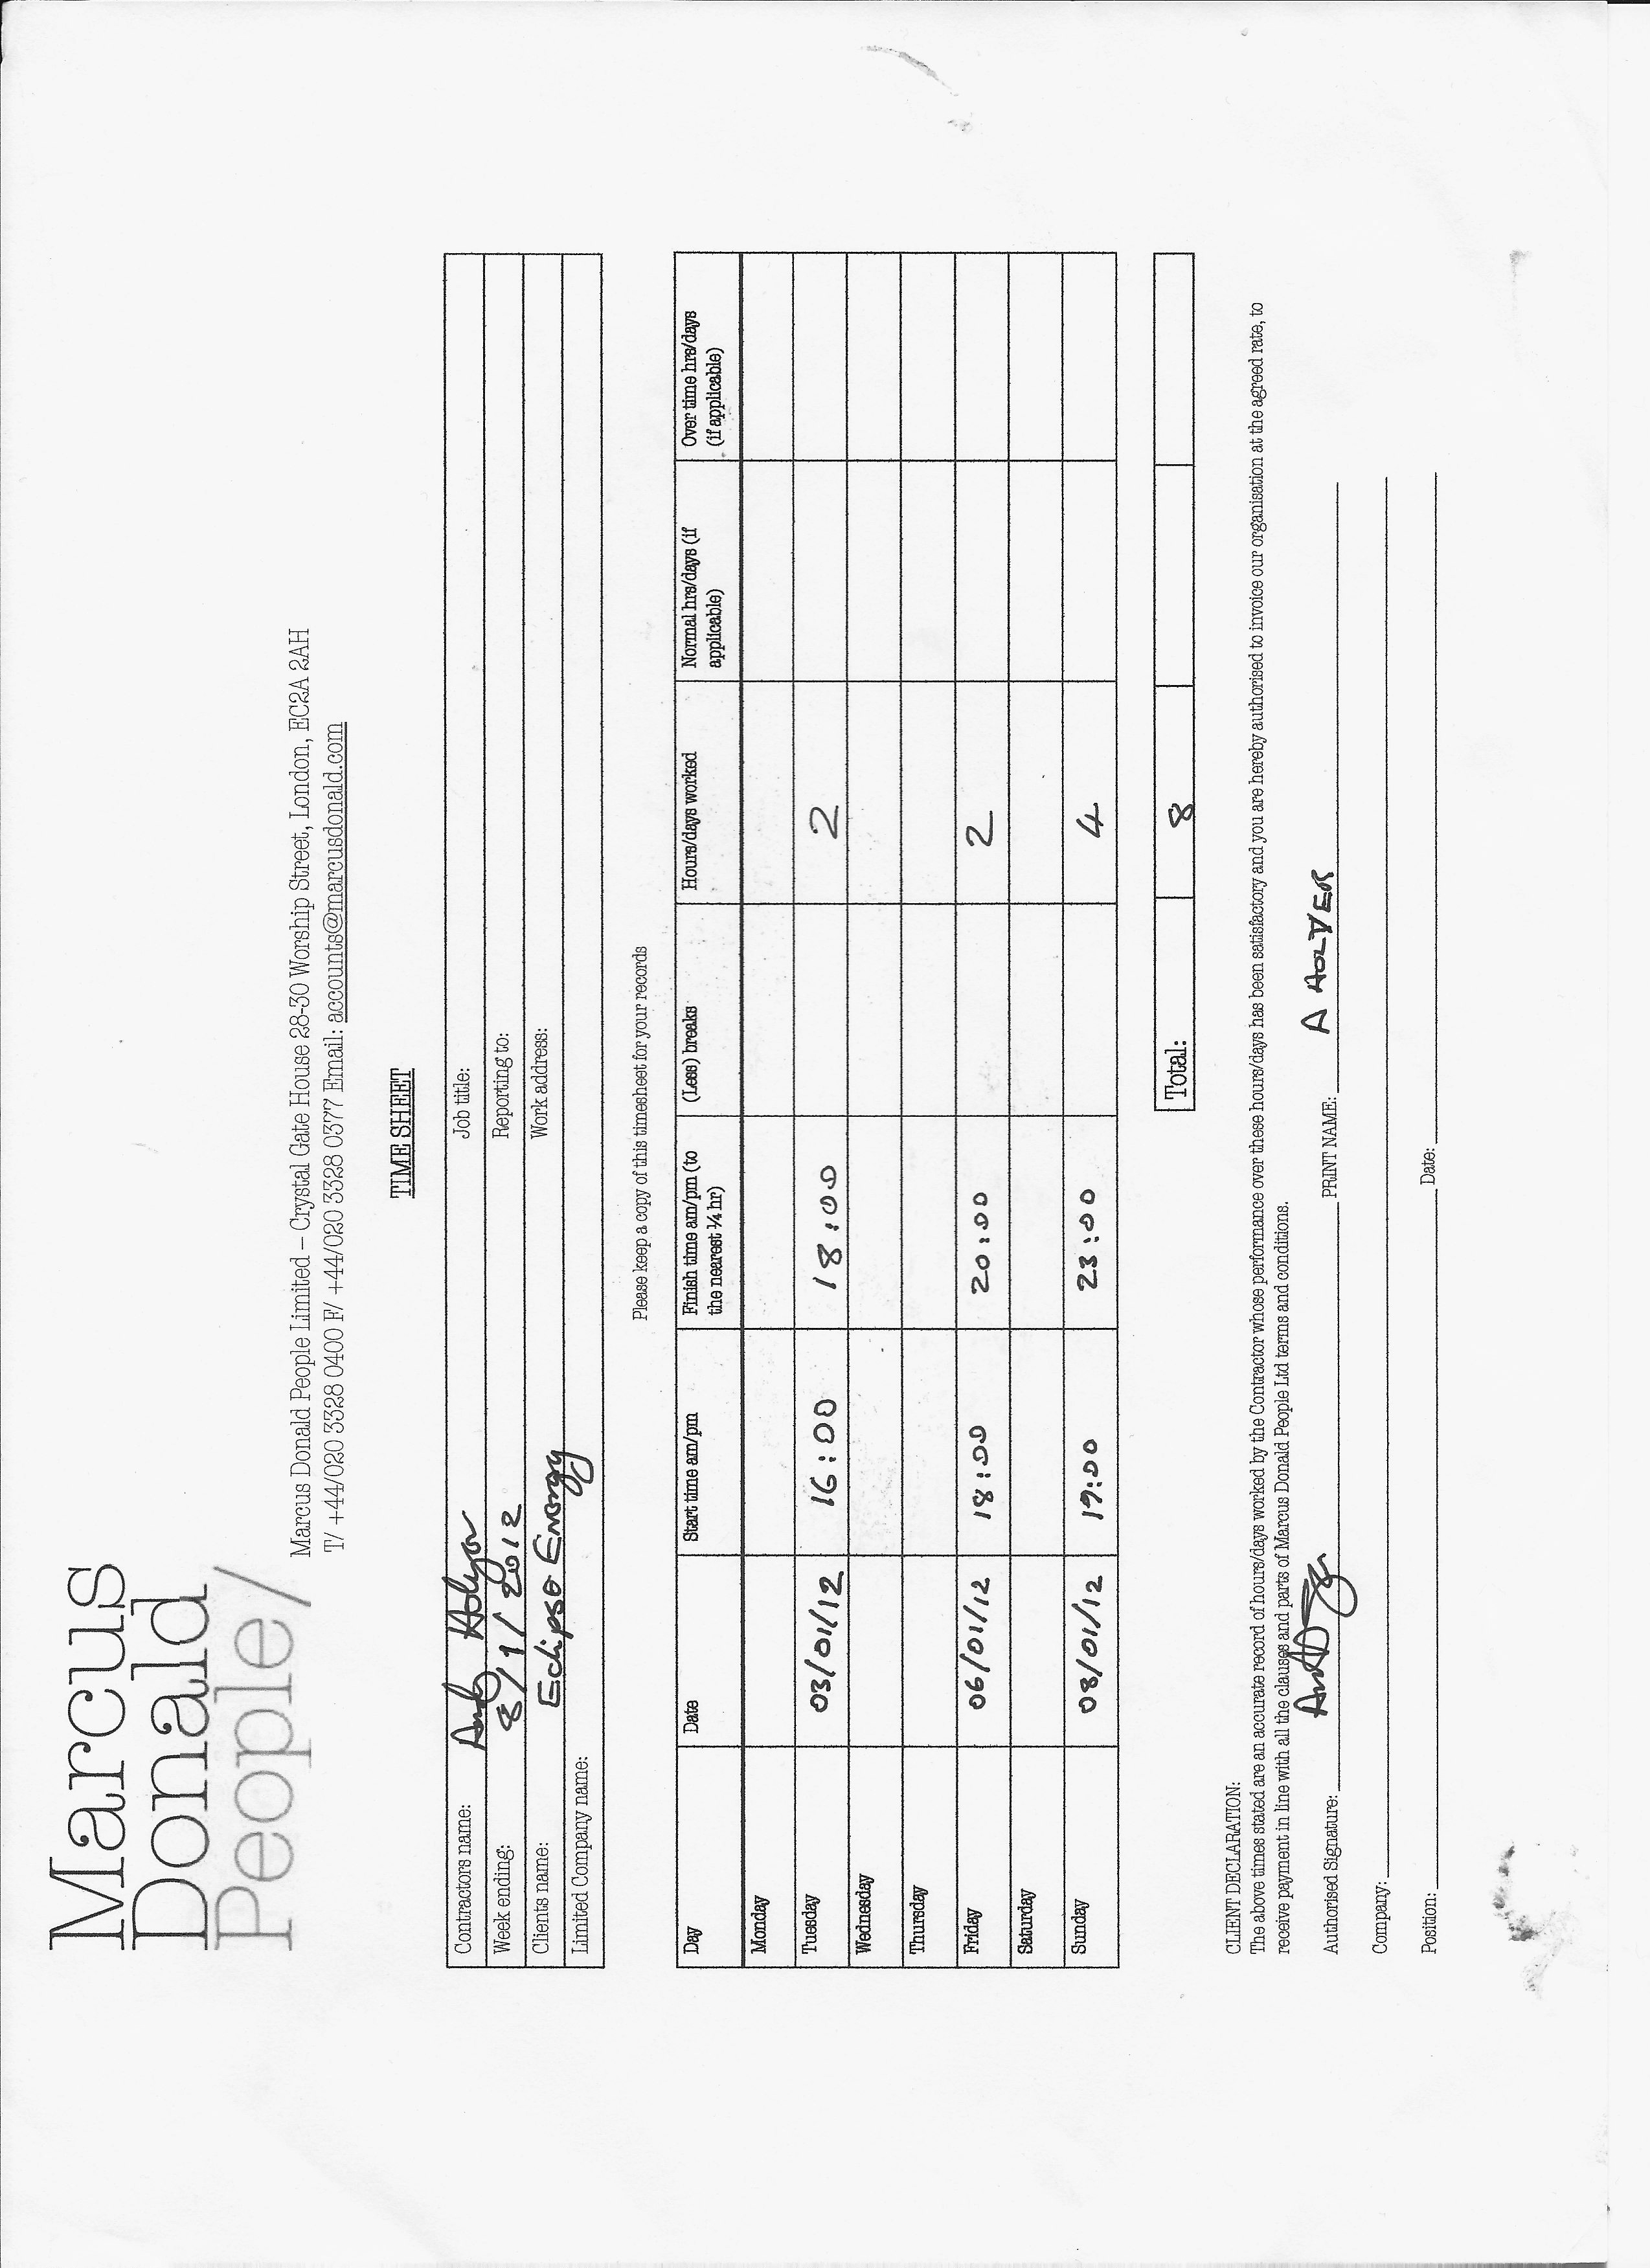 Marcus
Donald
People/
Marcus Donald People Limited – Crystal Gate House 28-30 Worship Street, London, EC2A 2AH
T/ +44/020 3328 0400 F/ +44/020 3328 0377 Email: accounts@marcusdonald.com
TIME SHEET
Contractors name: Andy Job title:
Week ending: 8/1/2012 Reporting to:
Clients name: Eclipse Energy Work address:
Limited Company name:
Please keep a copy of this timesheet for your records
Day Date Start time am/pm Finish time am/pm (to the nearest ¼ hr) (Less) breaks Hours/days worked Normal hrs/days (if applicable) Over time hrs/days (if applicable)
Monday
Tuesday 03/01/12 16:00 18:00 2
Wednesday
Thursday
Friday 06/01/12 18:00 20:00 2
Saturday
Sunday 08/01/12 19:00 23:00 4
Total: 8
CLIENT DECLARATION:
The above times stated are an accurate record of hours/days worked by the Contractor whose performance over these hours/days has been satisfactory and you are hereby authorised to invoice our organisation at the agreed rate, to
receive payment in line with all the clauses and parts of Marcus Donald People Ltd terms and conditions.
Authorised Signature: PRINT NAME: A
Company:
Position: Date: